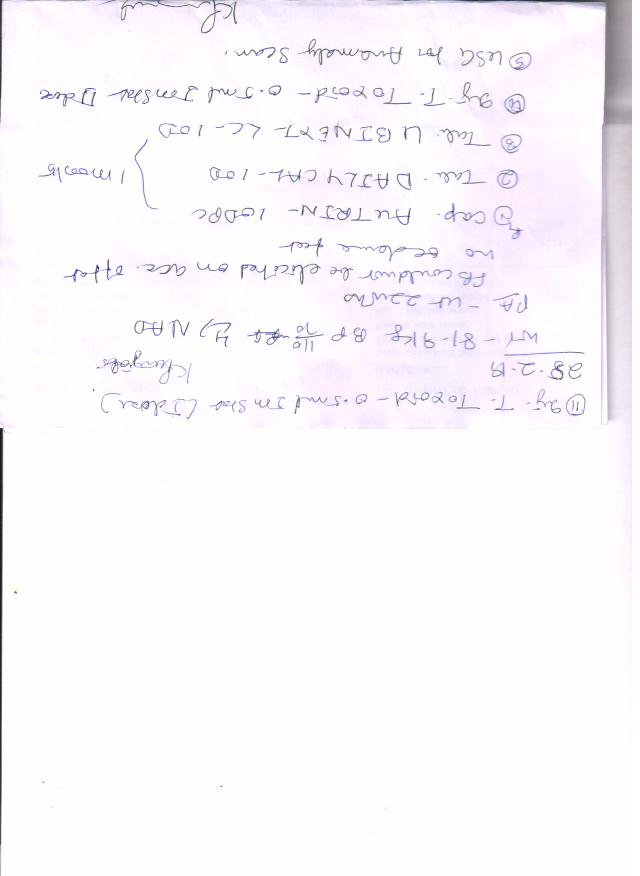 ⑪ Inj. T. Toxoid - 0.5ml Im Stat (I dose)
28.2.19
WT - 81.9kg BP 110/70 U) NAD
PA - ut 22wks
FS couldnot be elicited on acc. of fat
no oedema feet
① Cap. AUTRIN - 10D PC
② Tab. DAILYCAL - 10D
③ Tab. UBINEXT-LC-10D
1 month
④ Inj. T. Toxoid - 0.5ml Im Stat II dose
⑤ USG for Anomaly Scan.